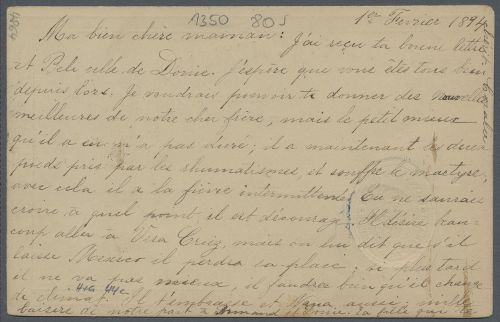 1350 80 s
1er Février 1894
Ma bien chère maman: J'ai reçu ta bonne lettre
et Bebi celle de Donie. J'espère que vous êtes tous bien
depuis lors. Je voudrais pouvoir te donner des nouvelles
meilleures de notre cher frère, mais le petit mieux
qu'il a eu n'a pas duré; il a maintenant les deux
pieds pris par les rhumatismes, et souffre le martyre,
avec cela il a la fièvre intermittente. Tu ne saurais
croire à quel point il est découragé. Il désire beau-
coup aller à Vera Cruz, mais on lui dit que s'il
laisse Mexico il perdra sa place; si plus tard
il ne va pas mieux, il faudra bien qu'il change
de climat. Il t'embrasse et Nana aussi; mille
baisers de notre part à Armand et Donie. ta fille que